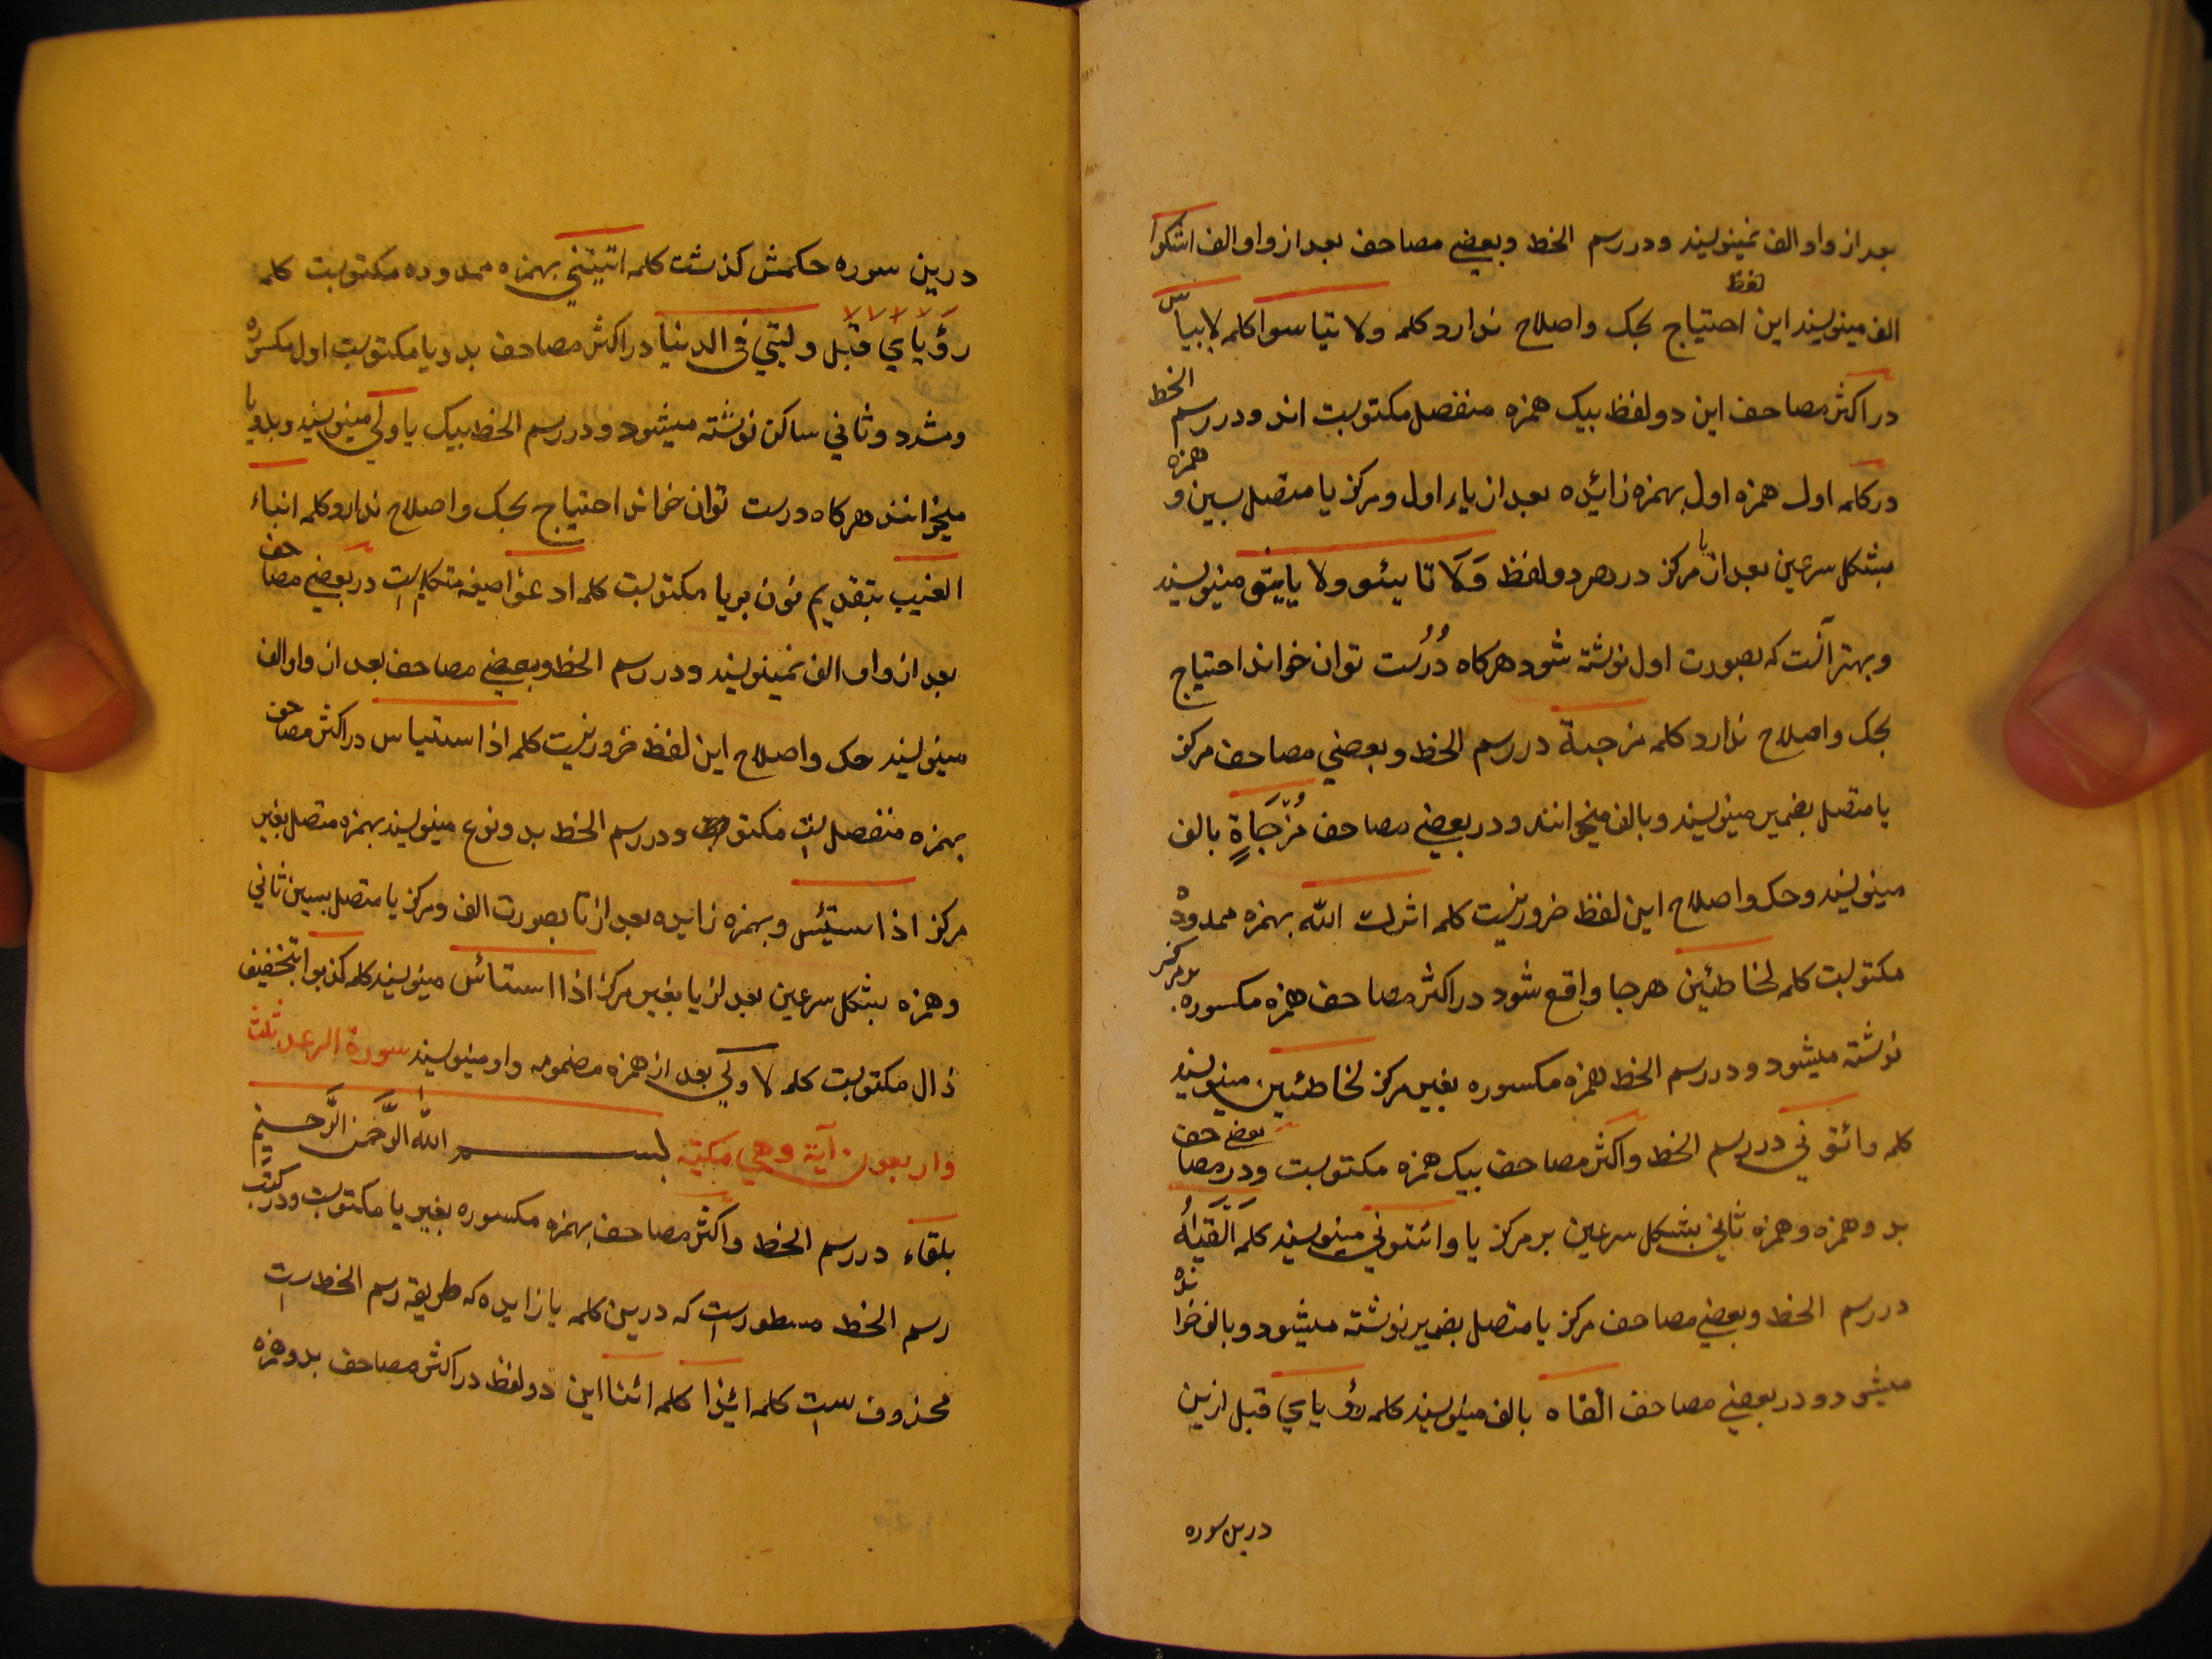 بعد از واو الف نمینویسند و در رسم الخط و بعضے مصاحف بعد از واو الف اشکوا
الف مینویسند این لفظ احتیاج بحک و اصلاح ندارد کلمه ولا تیاسوا کلمه لا ییاس
در اکثر مصاحف این دو لفظ بیک همزه منفصل مکتوبست اند و در رسم الخط
در کلمه اول همزه اول بهمزه زائیده بعد از یاء اول و مرکز یا متصل بسین و همزه
بشکل سرعین بعد از یا مرکز در هر دو لفظ وَلَا تایئسو ولا یایئس مینویسند
و بهتر آنست که بصورت اول نوشته شود هرکاه دُرُست توان خواند احتیاج
بحک و اصلاح ندارد کلمه مزجیة در رسم الخط و بعضي مصاحف مرکز
یا متصل بضمیر مینویسند و بالف میخوانند و در بعضے مصاحف مُزْجَاةٍ بالف
مینویسند و حک و اصلاح این لفظ ضرور نیست کلمه اثرک الله بهمزه ممدوده
مکتوبست کلمه لخاطئین هرجا واقع شود در اکثر مصاحف همزه مکسوره بر مرکز
نوشته میشود و در رسم الخط همزه مکسوره بغیر مرکز لخاطئین مینویسند
کلمه وائتونی در رسم الخط و اکثر مصاحف بیک همزه مکتوبست و در بعضے مصاحف
بدو همزه و همزه ثانی بشکل سرعین بر مرکز یا وائتونی مینویسند کلمه اَلْقَیٰهُ
در رسم الخط و بعضے مصاحف مرکز یا متصل بضمیر نوشته میشود و بالف خوانده
میشود و در بعضے مصاحف القاه بالف مینویسند کلمه رؤیاي قبل ازین
درین سوره
درین سوره حکمش کذشت کلمه اتیتنی بهمزه ممدوده مکتوبست کلمه
رؤیاي قبل ولیّي فی الدنیا در اکثر مصاحف بدو یا مکتوبست اول مکسوره
و مشدد و ثانی ساکن نوشته میشود و در رسم الخط بیک یا ولي مینویسند و بدو یا
میخوانند هرکاه درست توان خواند احتیاج بحک و اصلاح ندارد کلمه انباء
الغیب بتقدیم نون بر یا مکتوبست کلمه ادعوا صیغه متکلم است در بعضے مصاحف
بعد از واو الف نمینویسند و در رسم الخط و بعضے مصاحف بعد از واو الف
مینویسند حک و اصلاح این لفظ ضرور نیست کلمه اذا ستیاس در اکثر مصاحف
بهمزه منفصل است مکتوب و در رسم الخط بدو نوع مینویسند بهمزه متصل بغیر
مرکز اذا ستیئس و بهمزه زایده بعد از تا بصورت الف و مرکز یا متصل بسین ثانی
و همزه بشکل سرعین بعد از یا بغیر مرکز اذا استائس مینویسند کلمه کذبوا بتخفیف
ذال مکتوبست کلمه لا ولي بعد از همزه مضمومه واو مینویسند سورة الرعد ثلث
و اربعون آیة و هي مکیّة بسم الله الرَّحمٰن الرَّحیم
بلقاء در رسم الخط و اکثر مصاحف بهمزه مکسوره بغیر یا مکتوبست و در کتب
رسم الخط مسطور است که درین کلمه یا زایده که طریقه رسم الخط است
محذوف ست کلمه ائیذا کلمه ائنا این دو لفظ در اکثر مصاحف بدو همزه